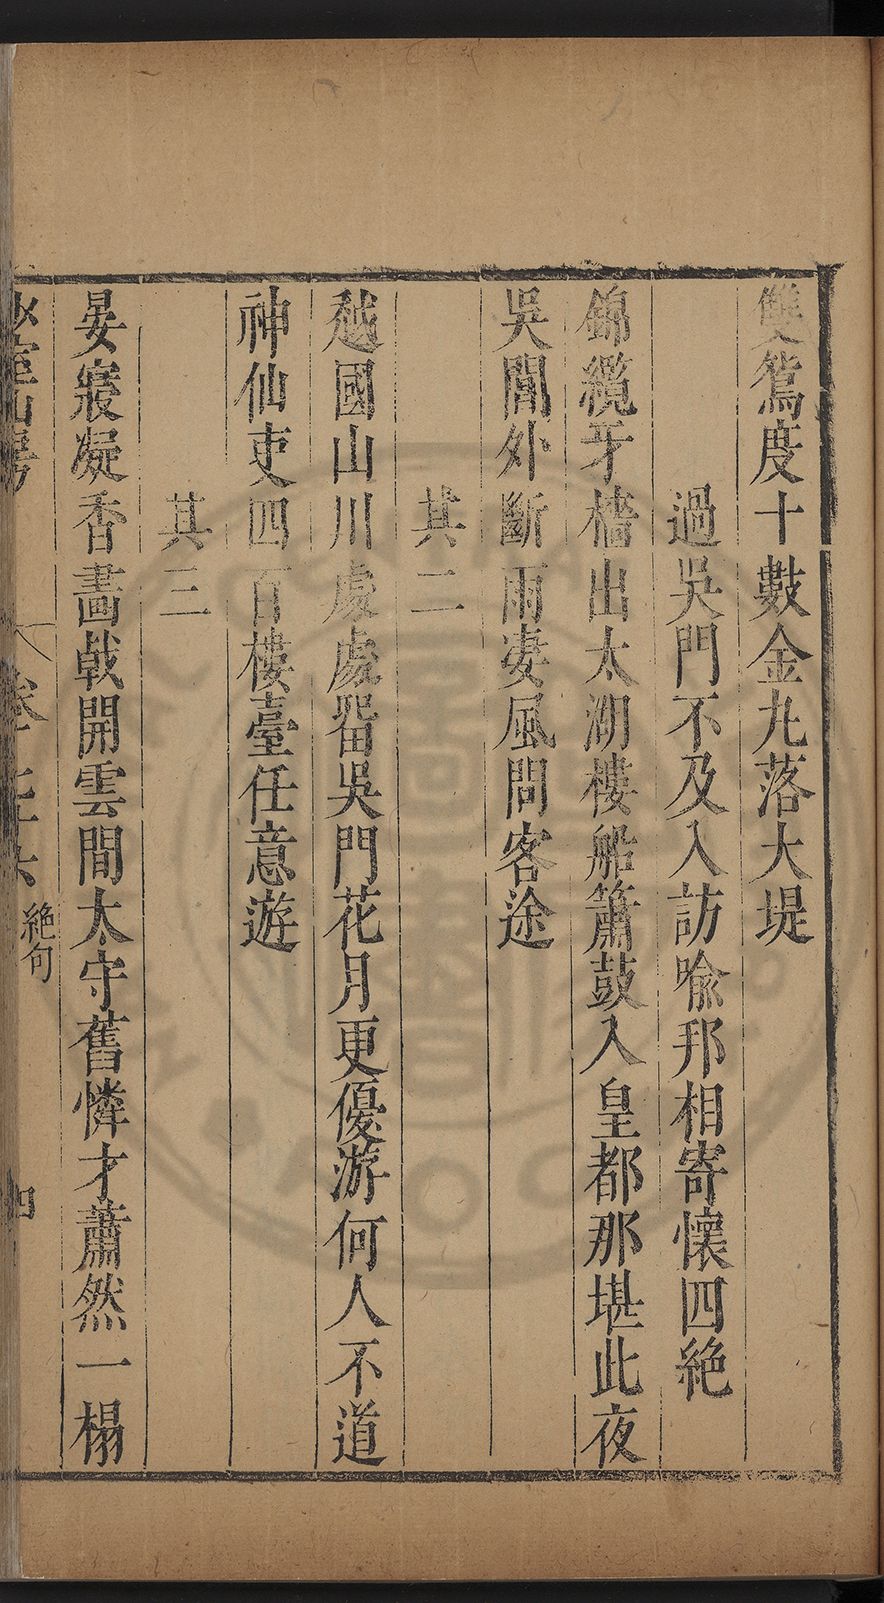 雙鴛度十數金丸落大堤
過吳門不及入訪喻邦相寄懷四絶
錦纜牙檣出太湖樓船簫鼓入皇都那堪此夜
吳閶外斷雨淒風問客途
其二
越國山川處處畱吳門花月更優游何人不道
神仙吏四百樓臺任意遊
其三
晏寢凝香畫戟開雲間太守舊憐才蕭然一榻
山房
卷
絶句
四